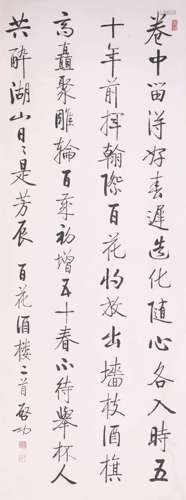 卷中留得好春遲造化随心各入時五
十年前揮翰際百花怡放出墻枝酒旗
高矗聚雕輪百萬初增五十春不待舉杯人
共醉湖山日日是芳辰 百花酒樓二首 啓功